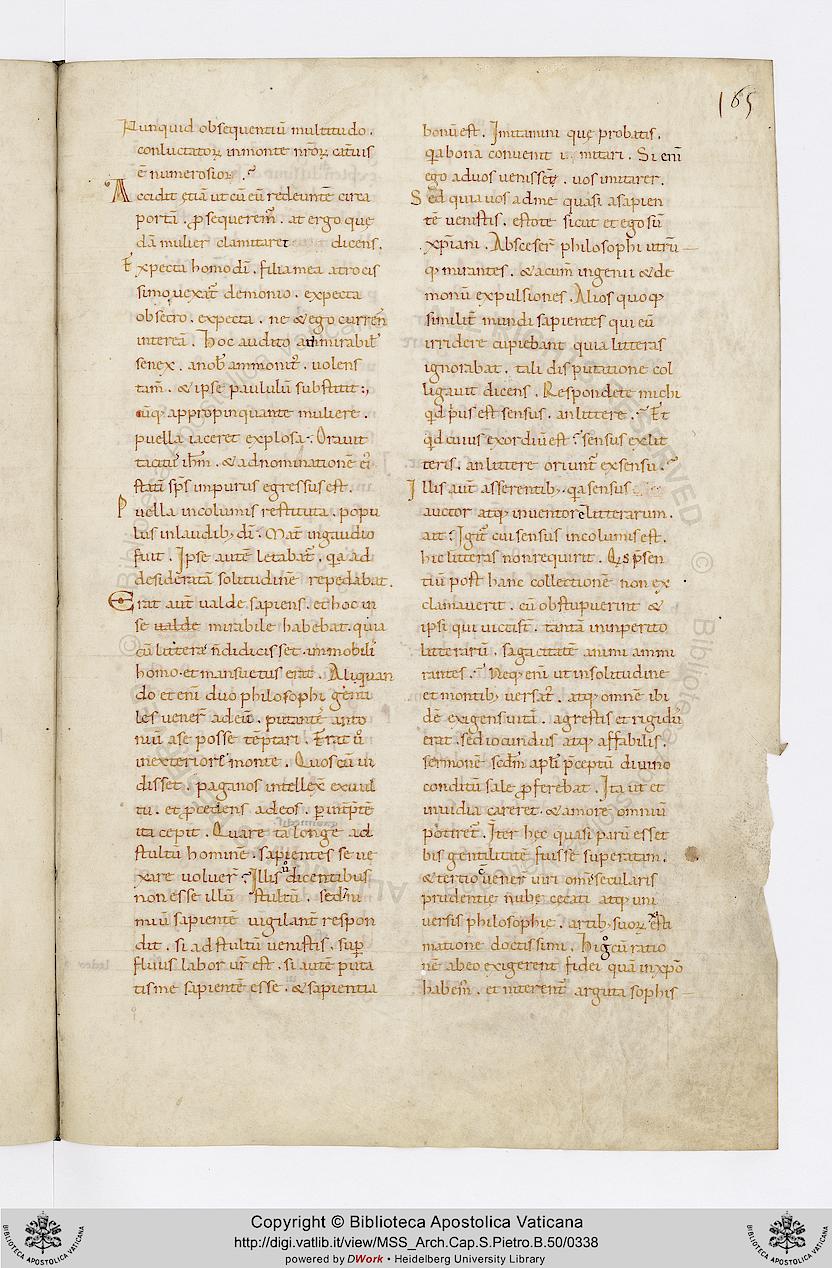 165
Nunquid obsequentiū multitudo.
conluctatoꝝ inmonte nr̄oꝝ ciuiū
ē numerosior.
Accidit &iā ut cū eū redeuntē circa
portā. ꝓsequerem̄. at ergo que
dā mulier clamitaret dicens.
Expecta homo dī. filia mea atrocis
simo uexat̄ demonio. expecta
obsecro. expecta. ne & ego currēn
intereā. hoc audito admirabil̄
senex. anob̄ ammonit᷒. uolens
tam̄. & ipse paululū substitit;
cūq; appropinquante muliere.
puella iaceret explosa. Orauit
tacit᷒ ih̄m. & ad nominationē ei᷒
statī sp̄s inpurus egressus est.
Puella incolumis restituta. popu
lus inlaudib; dī. Mat̄ ingaudio
fuit. Ipse autē letabat̄. qa ad
desideratā solitudinē repedabat.
Erat aut̄ ualde sapiens. et hoc in
se ualde mirabile habebat. quia
cū litteras n̄ didicisset. immobili᷒
homo. et mansuetus erat. Aliquan
do et eni duo philosophi genti
les uener̄ ad eū. putantes anto
niū a se posse tēptari. Erat u̅
inexteriore monte. Quos cū ui
disset. paganos intellex̄ exuul
tu. et ꝓcedens ad eos. ꝑ inꝑtē
ita cepit. Quare tā longe ad
stultū hominē. sapientes se ue
xare uoluer̄. Illis u̅ dicentibus
non esse illū stultū. sed ni
miū sapientē uigilant̄ respon
dit. si ad stultū uenistis. sup̄
fluus labor ur̄ est. si autē puta
tis me sapientē esse. & sapientia
bonū est. Imitamini que probatis.
qa bona conuenit imitari. Si eni
ego ad uos uenissē. uos imitarer.
Sed quia uos ad me quasi asapien
tē uenistis. estote sicut et ego sū
xp̄iani. Abscesser̄ philosophi utrū
q; mirantes. & acum̄ ingenii & de
monū expulsiones. Alios quoq;
similit̄ mundi sapientes qui eū
irridere cupiebant quia litteras
ignorabat. tali disputatione col
ligauit dicens. Respondete michi
qd̄ p᷒us est sensus. an littere. Et
qd̄ cuius exordiū est. sensus exlit
teris. an littere oriunt̄ exsensu.
Illis aut̄ asserentib; qa sensus
auctor atq; inuentor ē litterarum.
ait. Igit̄ cui sensus incolumis est.
hic litteras non requirit. Qs p̄sen
tiū post hanc collectionē non ex
clamauerit. cū obstupuerint &
ipsi qui uicti sī. tantā ininperito
litterarū. sagacitatē animi ammi
rantes. Neq; eni ut insolitudine
et montib; uersat᷒. atq; omnē ibi
dē exigens uitā. agrestis et rigidus
erat. sed iocundus atq; affabilis.
sermonē sedm apl̄i p̄ceptū diuino
conditū sale ꝓferebat. Ita ut et
inuidia careret. & amore omniū
potiret̄. Iter hec quasi parū esset
bis gentilitatē fuisse superatam.
& tertio uener̄ uiri om̄s secularis
prudentie nube cecati atq; uni
uersis philosophie. artib; suoꝝ esti
matione doctissimi. hi g̊ cū ratio
nē ab eo exigerent fidei quā inxp̄o
habem̄. et niterent̄ arguta sophis
Copyright © Biblioteca Apostolica Vaticana
http://digi.vatlib.it/view/MSS_Arch.Cap.S.Pietro.B.50/0338
powered by DWork • Heidelberg University Library